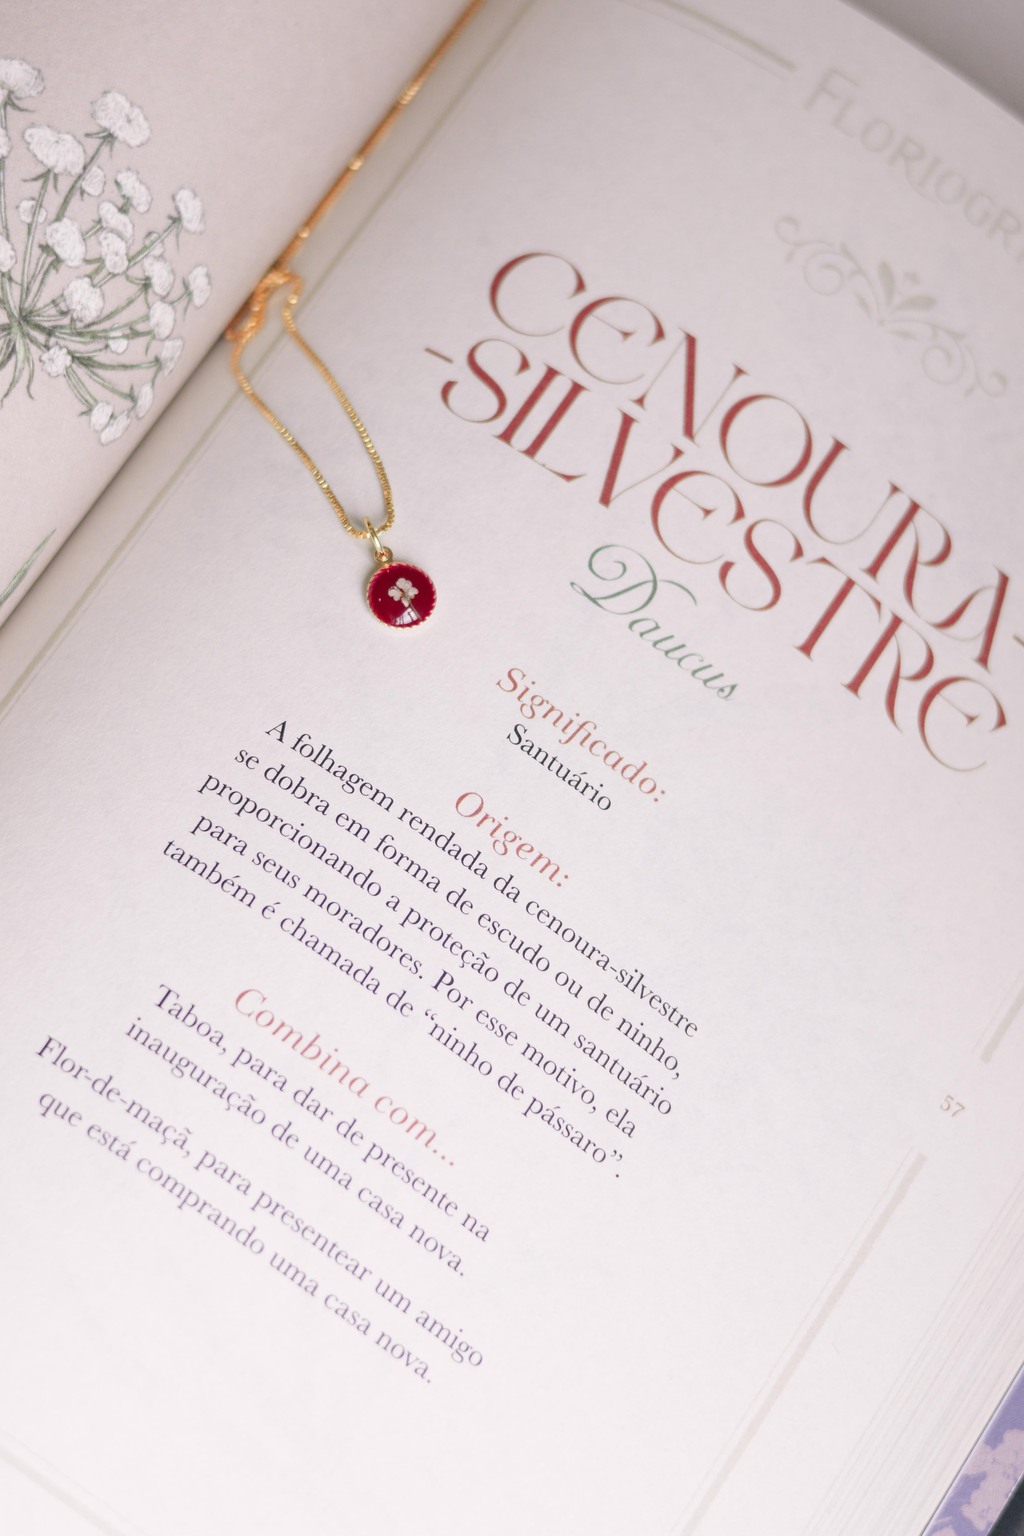 CENOURA-
-SILVESTRE
Daucus
Significado:
Santuário
Origem:
A folhagem rendada da cenoura-silvestre
se dobra em forma de escudo ou de ninho,
proporcionando a proteção de um santuário
para seus moradores. Por esse motivo, ela
também é chamada de “ninho de pássaro”.
Combina com...
Taboa, para dar de presente na
inauguração de uma casa nova.
Flor-de-maçã, para presentear um amigo
que está comprando uma casa nova.
57